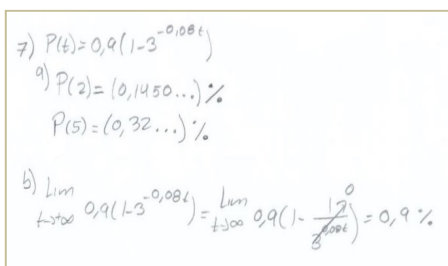 7) P(t)=0,9(1-3^-0,08t)
a) P(2)=(0,1450...)%
P(5)=(0,32...)%
b) Lim t→+∞ 0,9(1-3^-0,08t)=Lim t→∞ 0,9(1-1/3^0,08t)=0,9%